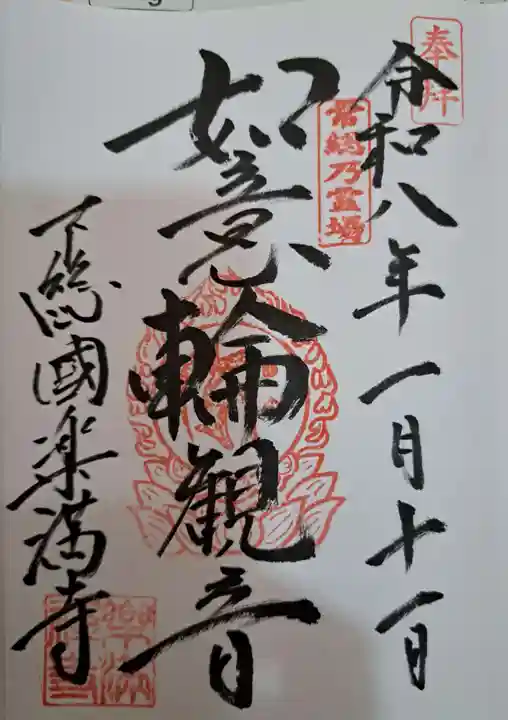 奉拝
令和八年一月十一日
常総乃霊場
如意輪観音
下総國楽満寺